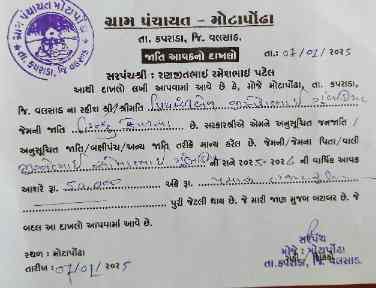 ગ્રામ પંચાયત - મોટાપોંઢા
તા. કપરાડા, જિ. વલસાડ.
જાતિ આવકનો દાખલો
તા.: 07/01/2025
સરપંચશ્રી : રણજીતભાઈ રમેશભાઈ પટેલ
આથી દાખલો લખી આપવામાં આવે છે કે, મોજે મોટાપોંઢા, તા. કપરાડા,
જિ. વલસાડ ના રહીશ શ્રી/શ્રીમતિ
જેમની જાતિ હિન્દુ છે. સરકારશ્રીએ એમને અનુસૂચિત જનજાતિ /
અનુસૂચિત જાતિ/બક્ષીપંચ/અન્ય જાતિ તરીકે માન્ય કરેલ છે. જેમની/જેમના પિતા/વાલી
ની સને ૨૦૨૫-૨૦૨૬ ની વાર્ષિક આવક
આશરે રૂા. 50,000 અંકે રૂા. પચાસ હજાર
પુરી જેટલી થાય છે. જે મારી જાણ મુજબ બરાબર છે. જે
બદલ આ દાખલો આપવામાં આવે છે.
સ્થળ : મોટાપોંઢા
તારીખ : 07/01/2025
સરપંચ
મોજે : મોટાપોંઢા
તા. કપરાડા, જિ. વલસાડ.
ગ્રામ પંચાયત મોટાપોંઢા
તા. કપરાડા, જિ. વલસાડ